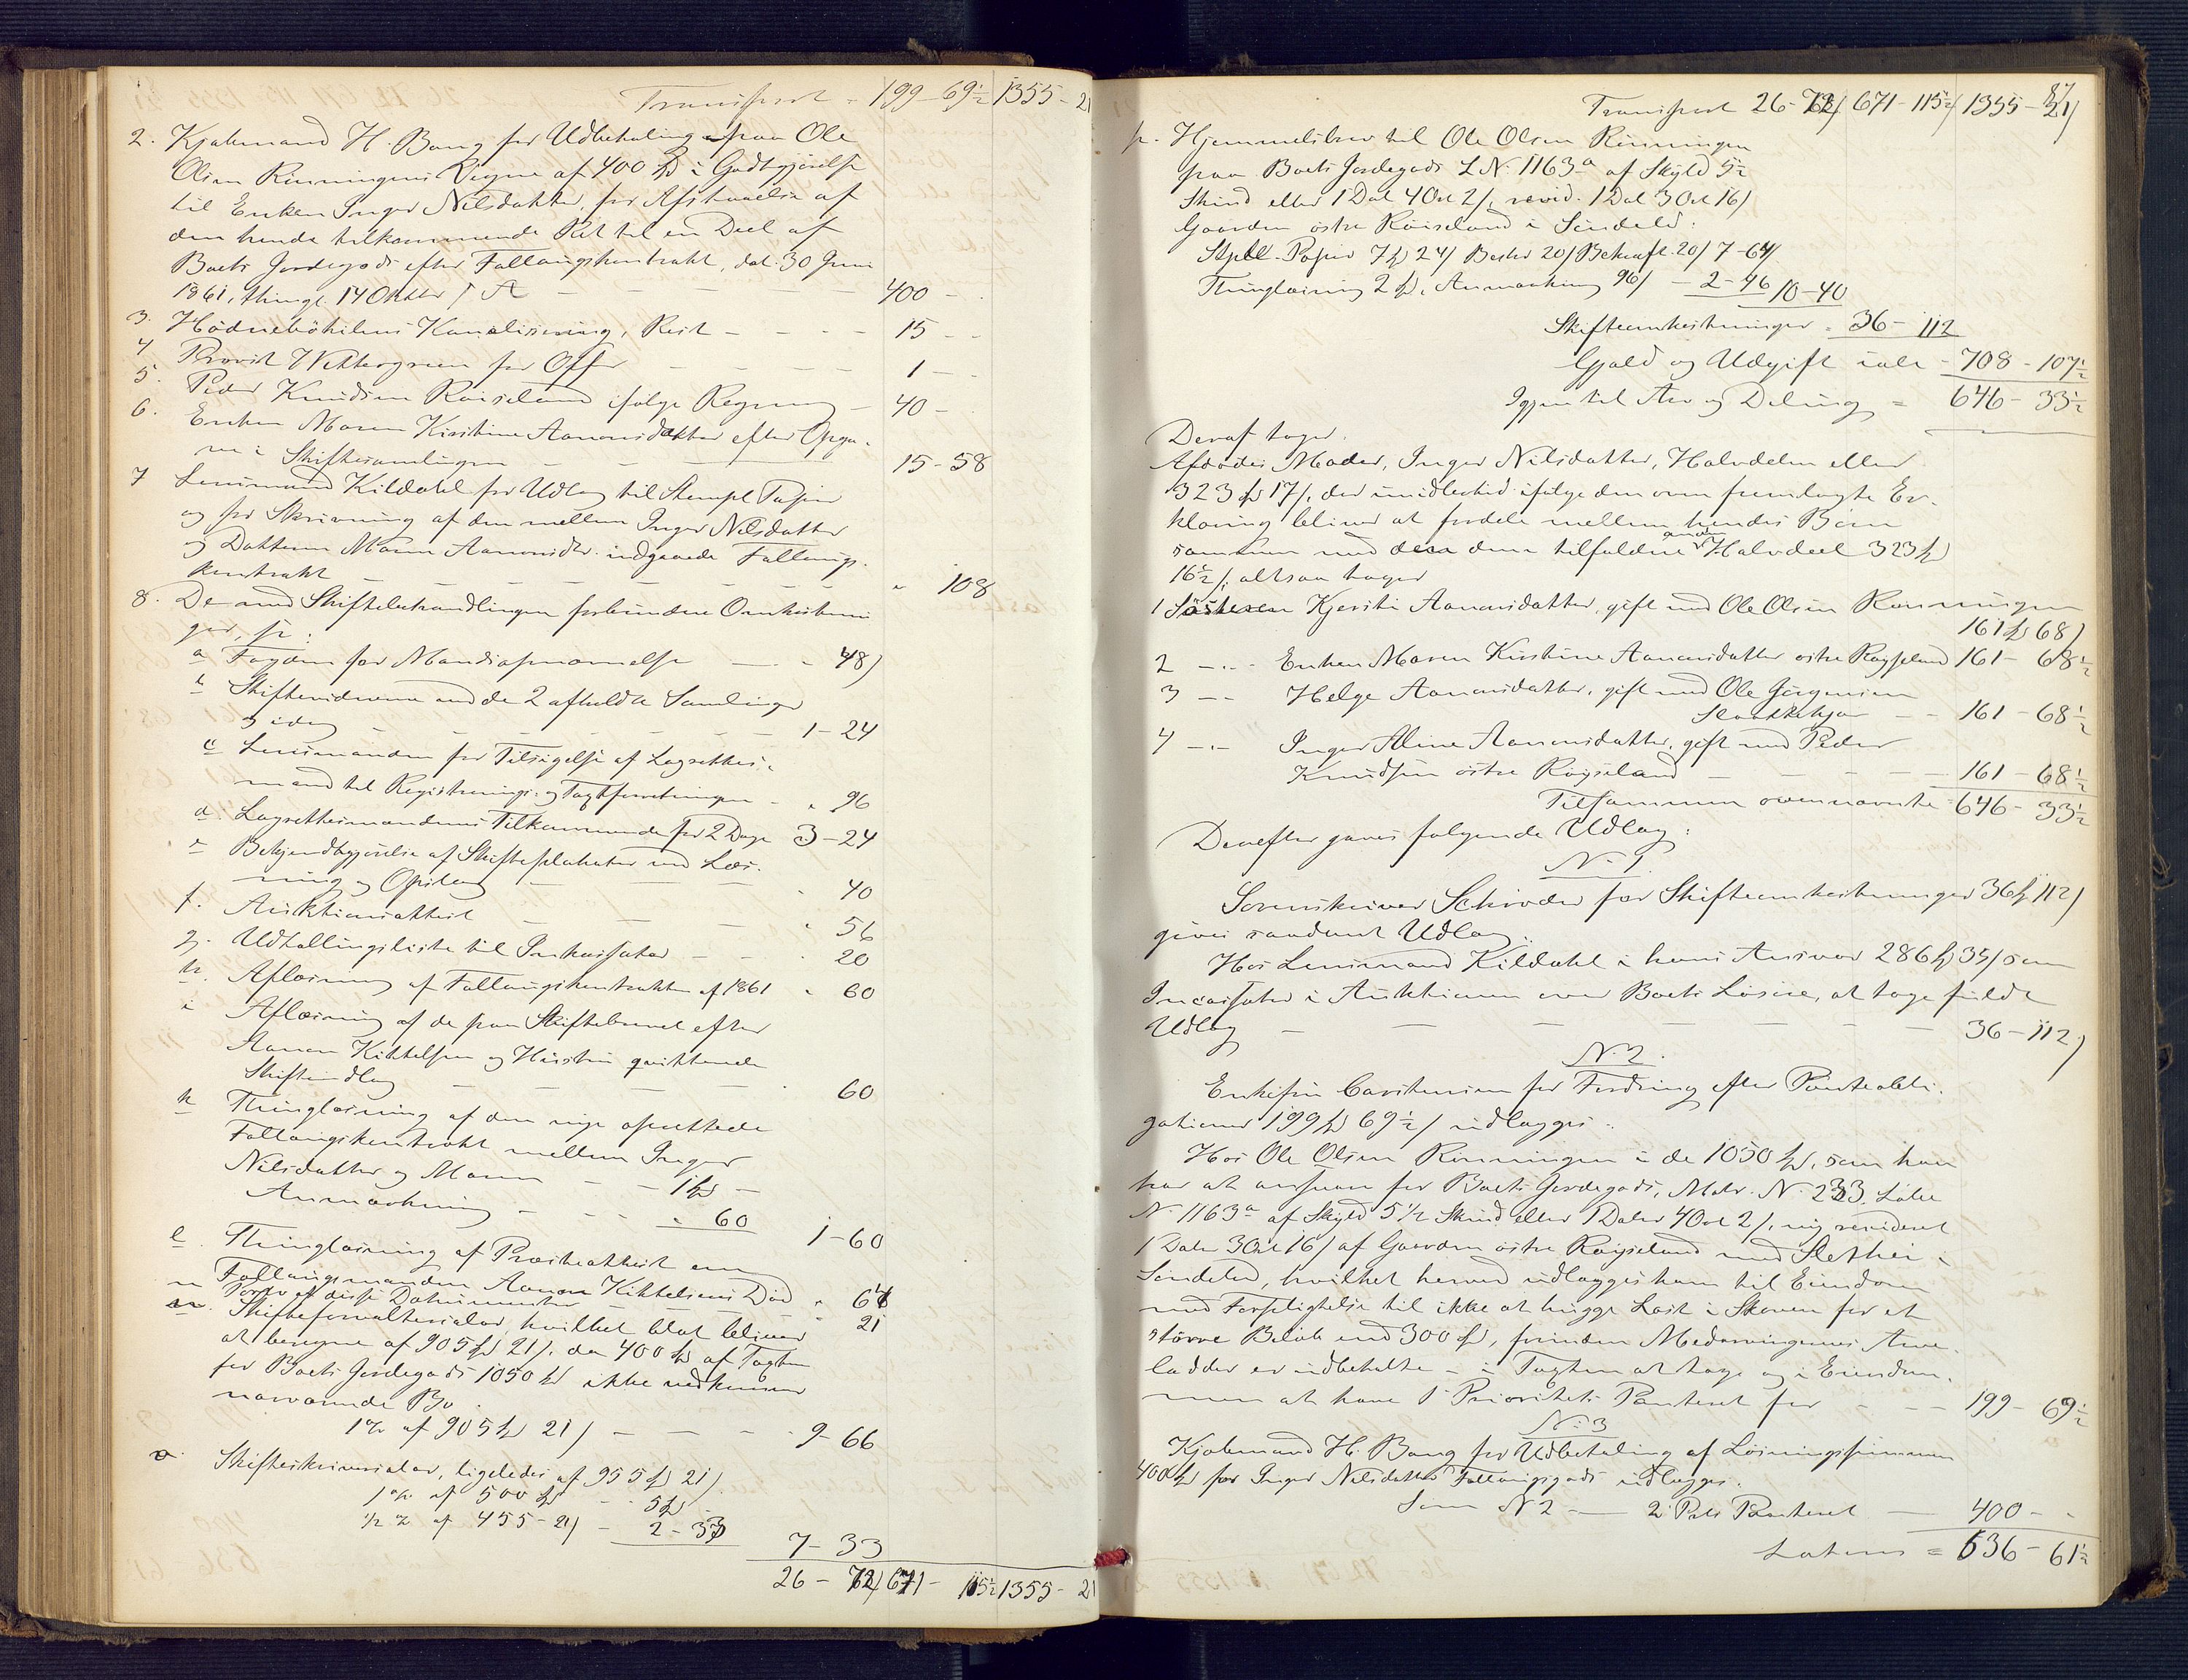 Transport - 199 - 69½ 1355 - 21
2. Kjøbmand H. Bang for Udbetaling paa Ole
Olsen Rinningens Vegne af 400 Spd i Godtgjørelse
til Enken Inger Nilsdatter, for Afstaaelse af
den hende tilkommende Ret til en Deel af
Boets Jordegods efter Follaugskontrakt, dat. 30 Juni
1861, thingl. 14 Oktbr s. A. - - - 400 -
3. Hødnebøkilens Kanalisering, Rest - - - 15 - -
4 Provst Wettergreen for Offer - - - 1 - -
5. Peder Knudsen Røiseland ifølge Regning - 40 -
6. Enken Maren Kirstine Aanonsdatter efter Opga-
ve i Skiftesamlingen - - - 15 - 58
7 Lensmand Kildahl for Udlæg til Stempl. Papir
og for Skrivning af den mellem Inger Nilsdatter
og Datteren Maren Aanonsdtr. indgaaede Follaugs-
kontrakt - - - " 108
8. De med Skiftebehandlingen forbundne Omkostnin
ger, sc:
a Fogden for Mandsopnævnelse - - - 48/
b Skiftevidnerne ved de 2 afholdte Samlinger
og idag - - - 1 - 24
c Lensmanden for Tilsigelse af Lagrettes-
mænd til Registrerings- og Taxtforretningen - " 96
d Lagrettesmændenes Tilkommende for 2 Dage 3 - 24
e Bekjendtgjørelse af Skifteplakater ved Læs-
ning og Opslag - - - " 40
f. Auktionsattest - - - " 56
g. Udtællingsliste til Inkassator - - - " 20
h. Aflæsning af Follaugskontrakten af 1861 " 60
i Aflæsning af de paa Skiftebrevet efter
Aanon Kittelsen og Hustru qvitterede
Skifteudlæg - - - " 60
k Thinglæsning af den nye oprettede
Follaugskontrakt mellem Inger
Nilsdatter og Maren - - 1 Spd -
Anmærkning - - - " 60 1 - 60
l Thinglæsning af Præsteattest om
Follaugsmanden Aanon Kittelsens Død " 64
m Porto af disse Dokumenter - - - " 21
n. Skifteforvaltersalær, hvilket blot bliver
at beregne af 905 Spd 21/, da 400 Spd af Taxten
for Boets Jordegods 1050 Spd ikke vedkommer
nærværende Bo.
1 % af 905 Spd 21/ - - - 9 - 66
o Skifteskriversalær, ligeledes af 955 Spd 21/.
1 % af 500 Spd - - 5 Spd
½ % af 455 - 21/ - 2 - 33
7 - 33
26 - 72/ 671 - 115½ 1355 - 21
87
Transport 26 - 72/ 671 - 115½/ 1355 - 21/
p. Hjemmelsbrev til Ole Olsen Rinningen
paa Boets Jordegods L N. 1163a af Skyld 5½
Skind eller 1 Dal 4 Ort 2/, revid. 1 Dal 3 Ort 16/
Gaarden østre Røiseland i Søndeled:
Stpll. Papir 7 Spd 24/ Beskr 20/ Bekræft. 20/ 7 - 64/
Thinglæsning 2 Spd, Anmærkning 96/ - 2 - 96 10 - 40
Skifteomkostninger = 36 - 112
Gjæld og Udgift ialt - 708 - 107½
Igjen til Arv og Deling = 646 - 33½
Deraf tager:
Afdødes Moder, Inger Nilsdatter, Halvdelen eller
323 Spd 17/, der imidlertid ifølge den ovenfremlagte Er-
klæring bliver at fordele mellem hendes Børn
sammen med den dem tilfaldne anden Halvdeel 323 Spd
16½/, altsaa tager
1 Søsteren Kjersti Aanonsdatter, gift med Ole Olsen Rønningen
161 Spd 68/
2 -"- Enken Maren Kirstine Aanonsdatter østre Røysland 161 - 68½
3 -"- Helge Aanonsdatter, gift med Ole Jørgensen
- - 161 - 68½
4 -"- Inger Aline Aanonsdatter, gift med Peder
Knudsen østre Røyseland - - - 161 - 68½
Tilsammen ovennævnte 646 - 33½
Derefter gaves følgende Udlæg:
N. 1.
Sorenskriver Schrøder for Skifteomkostninger 36 Spd 112/
gives saadant Udlæg:
Hos Lensmand Kildahl i hans Ansvar 286 Spd 35/ som
Incassator i Auktionen over Boets Løsøre, at tage fuldt
Udlæg - - - 36 - 112/
N. 2.
Enkefru Carstensen for Fordring efter Panteobli-
gationer 199 Spd 69½/ udlægges:
Hos Ole Olsen Rønningen i de 1050 Spd, som han
har at ansvare for Boets Jordegods, Matr. N. 233 Løbe
N. 1163a af Skyld 5½ Skind eller 1 Daler 4 Ort 2/, ny revideret
1 Daler 3 Ort 16/ af Gaarden østre Røyseland med Slethei i
Søndeled, hvilket herved udlægges ham til Eiendom
med Forpligtelse til ikke at hugge Last i Skoven for et
større Beløb end 300 Spd, førinden Medarvingernes Arve-
lodder er udbetalte - i Taxten at tage og i Eiendom-
men at have 1ste Prioritets Panteret for - - - 199 - 69½
N. 3
Kjøbmand H. Bang for Udbetaling af Løsningssummen
400 Spd for Inger Nilsdatters Follaugsgods udlægges:
Som N 2 - 2 Prts Panteret - 400 - -
Latus = 636 - 61½